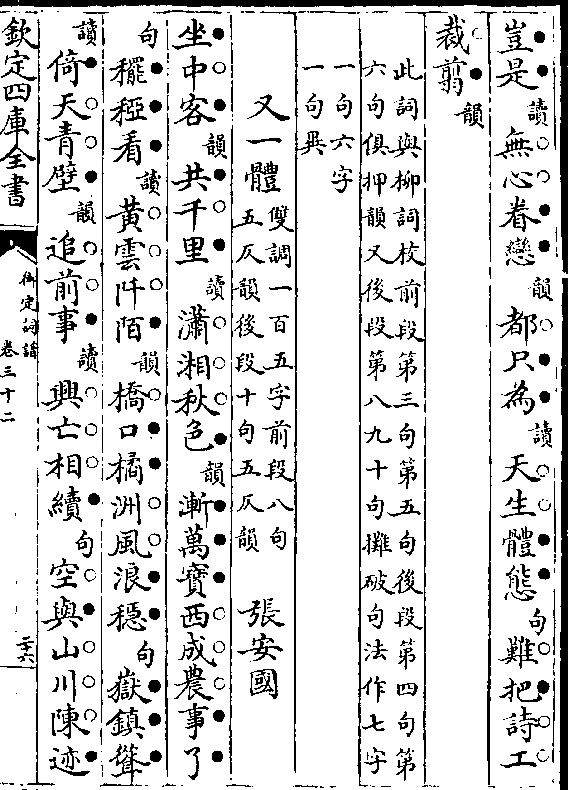 豈是讀無心眷戀韻都只為讀天生體態句難把詩工
裁翦韻
此詞與柳詞校前段第三句第五句後段第四句第
六句俱押韻又後段第八九十句攤破句法作七字
一句六字
一句異
又一體雙調一百五字前段八句
五仄韻後段十句五仄韻　張安國
坐中客韻共千里讀瀟湘秋色韻漸萬寶西成農事了
句䆉稏看讀黃雲阡陌韻橋口橘洲風浪穩句嶽鎮聳
讀倚天青壁韻追前事讀興亡相續句空與山川陳迹
欽定四庫全書
御定詞譜
卷三十二
二十六